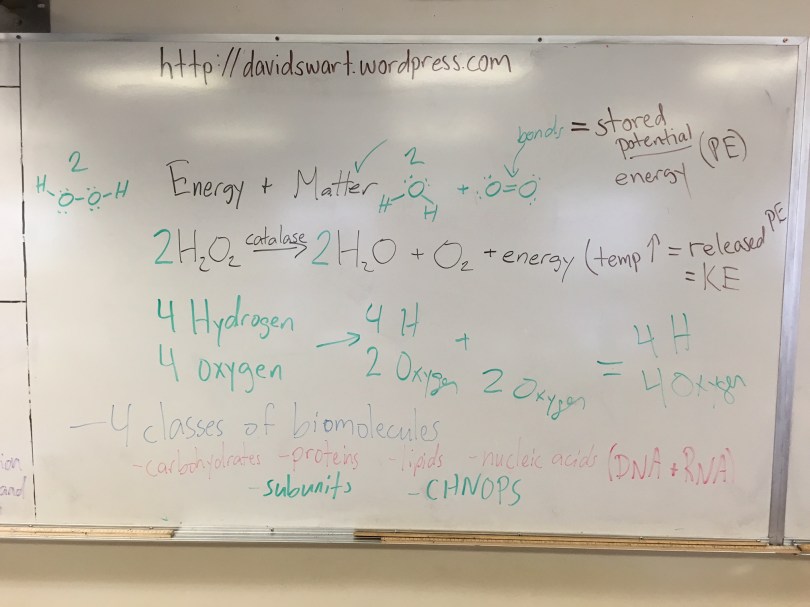 http://davidswart.wordpress.com
bonds = stored
potential (PE)
energy
2 H-O-O-H
Energy + Matter ✓ 2 H O H + O=O
2H₂O₂ catalase→ 2H₂O + O₂ + energy (temp ↑ = released PE
= KE
4 Hydrogen → 4 H + = 4 H
4 oxygen 2 Oxygen 2 Oxygen 4 Oxygen
- 4 classes of biomolecules
- carbohydrates - proteins - lipids - nucleic acids (DNA + RNA)
- subunits - CHNOPS
ion
and